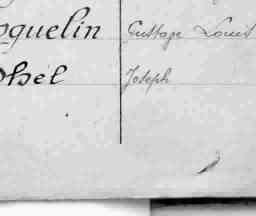 oquelin Gustave Louis
ohel Joseph